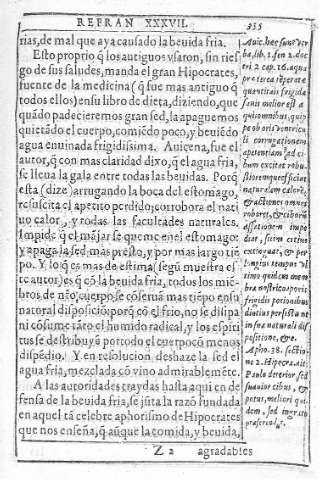 REFRAN XXXVII.
355
rias, de mal que aya causado la beuida fria.
Esto proprio q̃ los antiguos vsaron, sin ries
go de sus saludes, manda el gran Hipocrates,
fuente de la medicina (q̃ fue mas antiguo q̃
todos ellos) en su libro de dieta, diziendo, que
quãdo padecieremos gran sed, la apaguemos
quietãdo el cuerpo, comiẽdo poco, y beuiẽdo
agua enuinada frigidissima. Auicena, fue el
autor, q̃ con mas claridad dixo, q̃ el agua fria,
se lleua la gala entre todas las beuidas. Porq̃
esta (dize) arrugando la boca del estomago,
resuscita el apetito perdido; corrobora el nati
uo calor, y todas las facultades naturales.
Impide q̃ el mãjar se queme en el estomago:
y apaga la sed mas presto, y por mas largo tiẽ
po. Y lo q̃ es mas de estima (segũ muestra es
te autor) es q̃ cõ la beuida fria, todos los miẽ-
bros de nro cuerpo, se cõseruã mas tiẽpo en su
natural disposiciõ: porq̃ cõ el frio, no se disipa
ni cõsume tãto el humido radical, y los espiri
tus se destribuyẽ por todo el cuerpo cõ menos
dispẽdio. Y en resolucion deshaze la sed el
agua fria, mezclada cõ vino admirablemẽte.
A las autoridades traydas hasta aqui en de
fensa de la beuida fria, se jũta la razõ fundada
en aquel tã celebre aphorismo de Hipocrates
que nos enseña, q̃ aũque la comida, y beuida,
Z 2 agradables
Auic. hęc sunt ver
ba, lib. 1. fen 2. doc
tri 2 cap. 16. aqua
pręterea tẽperatę
quantitatis frigida
sanis melior est a
quis omnibus, quip
pe ob oris ventricu
li corrugationem
apetentiam ad ci
bum excitat robu
stioremque sficiat
naturalem calorẽ,
& actiones omnes
roboret, & ciborũ
assationem impe
diat, sitim citius
extinguat, & per
longius tempus vl
timo quidem mem
bra nostra corporis
frigidis potionibus
diutius perfecta ut
in sua naturali dis
positione, &c.
Apho. 38. sectio-
ne 2. Hipocra. ait:
Paulo deterior, sed
suauior cibus, &
potus, meliori qui
dem, sed ingrato
præferẽdus.